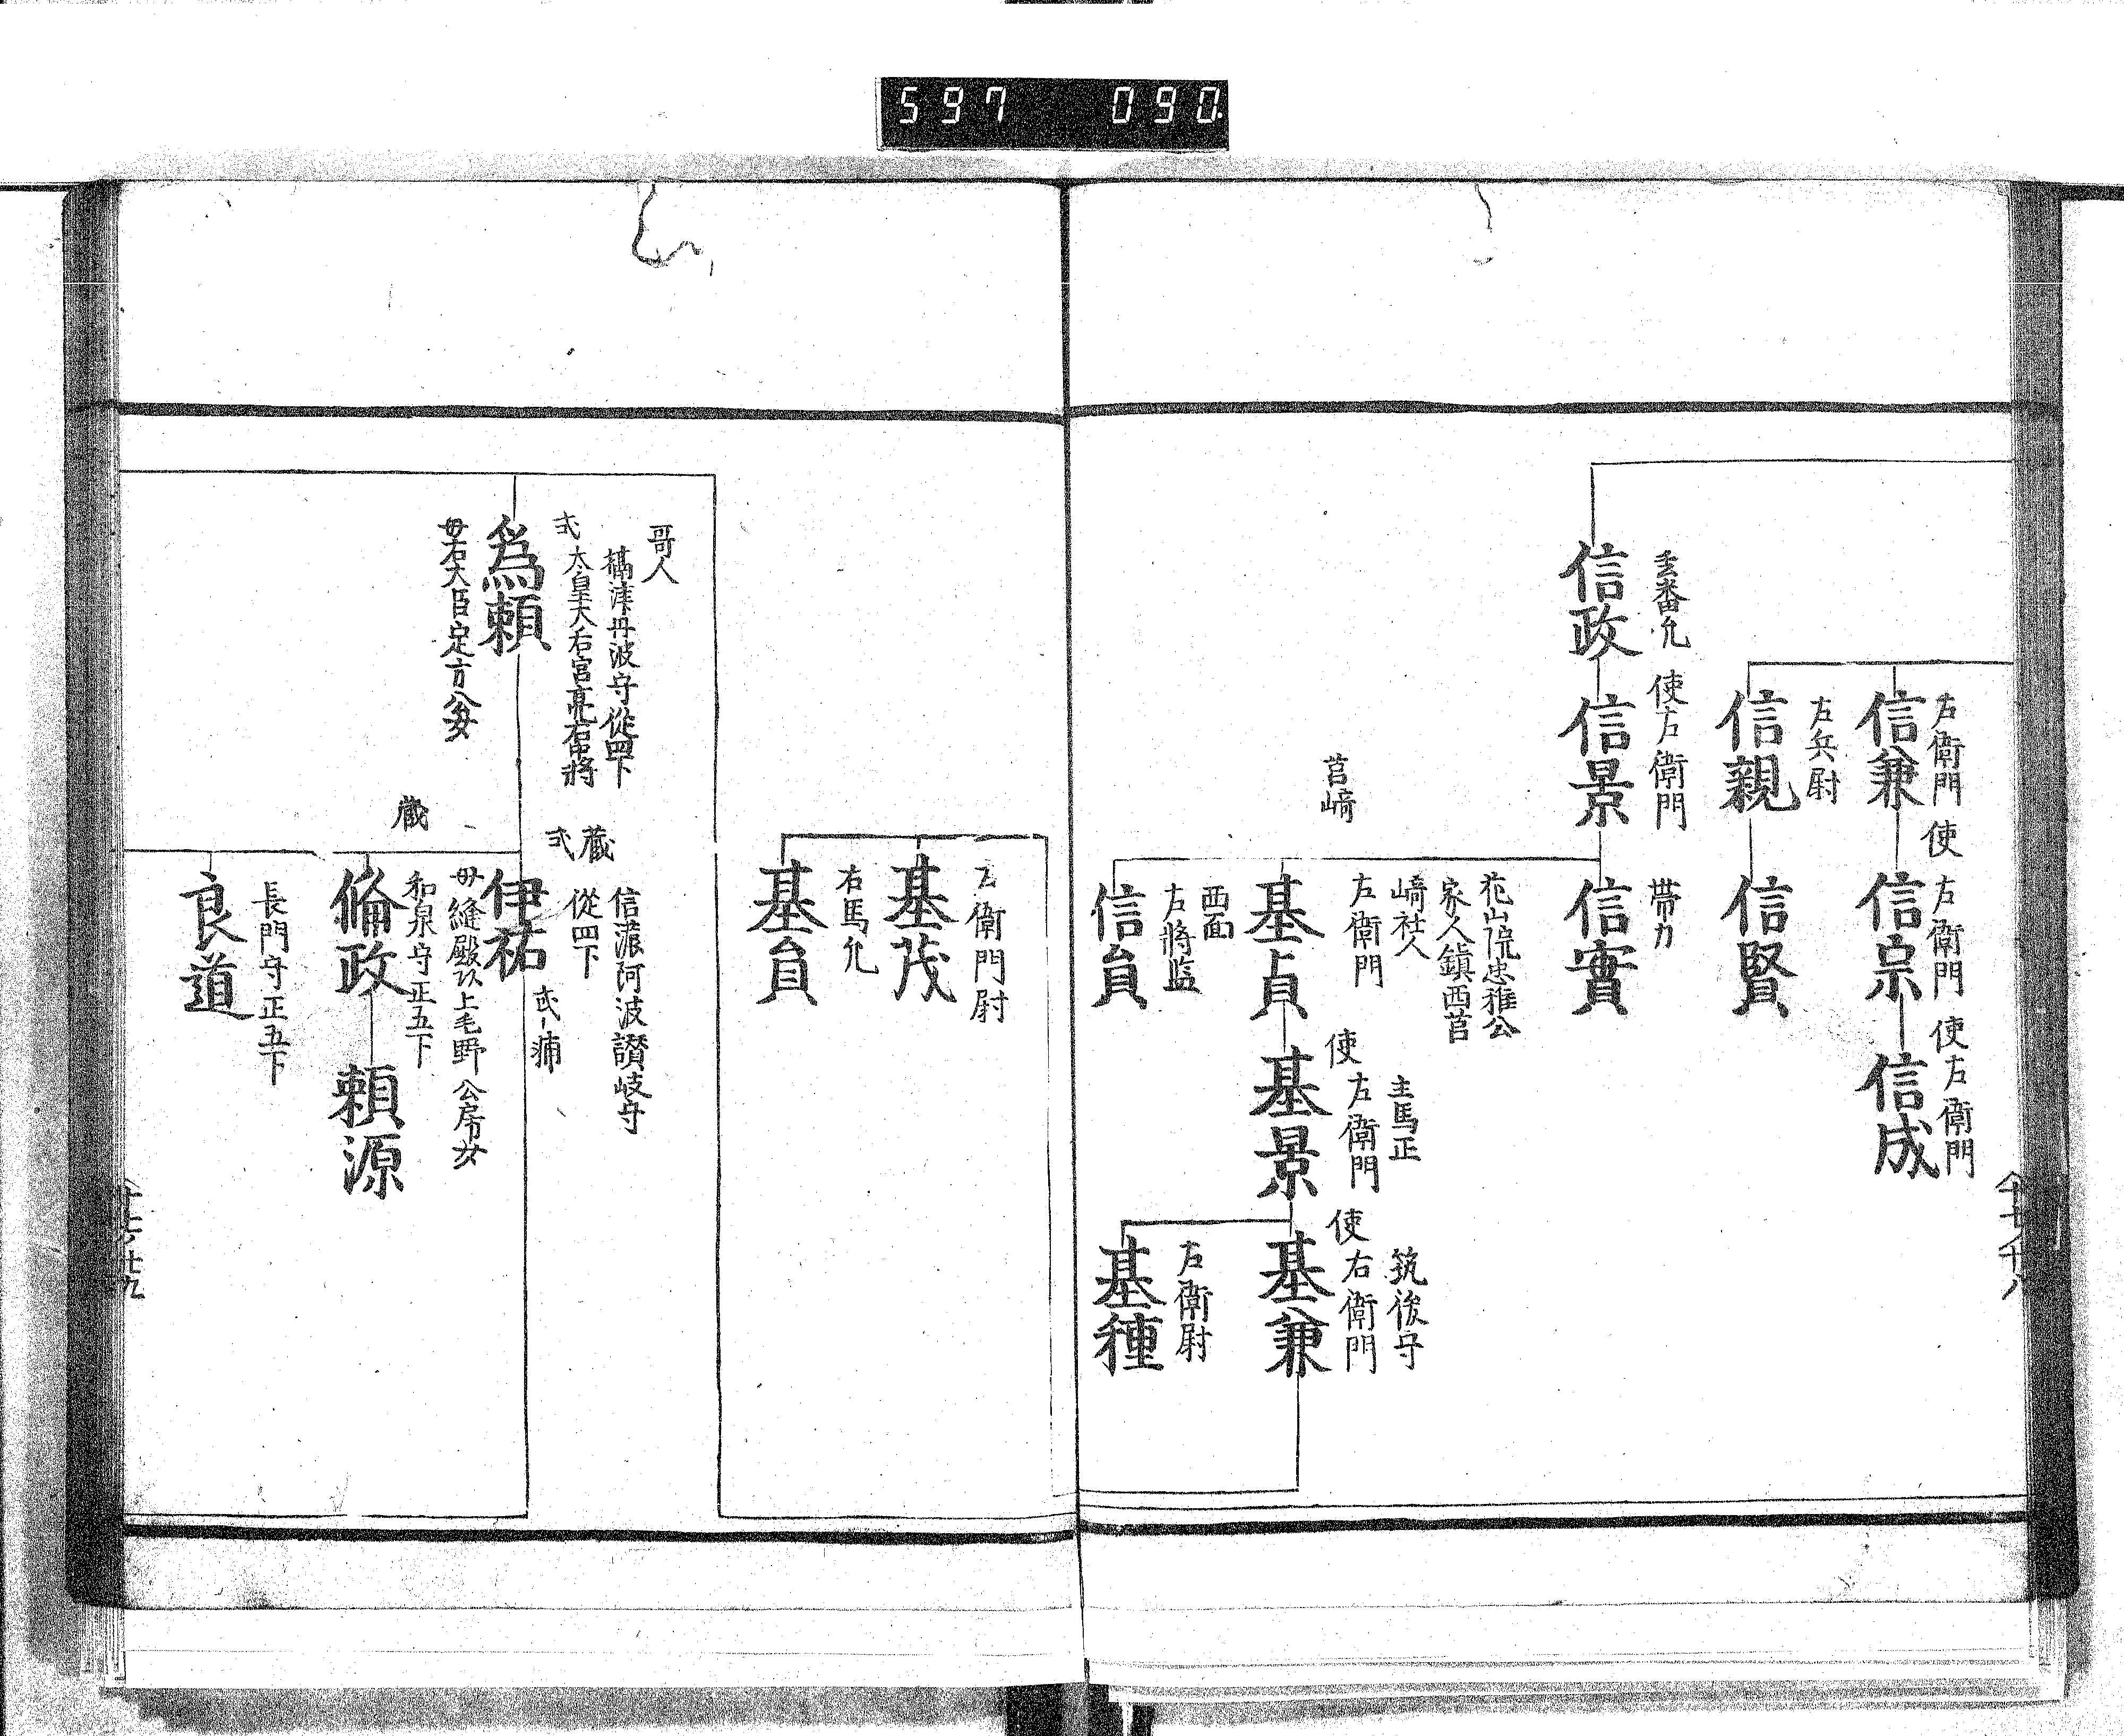 597 090
左衛門
使
信兼
左衛門
使
信宗
左衛門
信成
左兵尉
信親
信賢
玄番允
信政
使左衛門
信景
帯刀
信實
花山院忠雅公
家人鎮西筥
崎社人
左衛門
筥崎
基貞
主馬正
使
左衛門
基景
筑後守
使
右衛門
基兼
左衛尉
基種
西面
左將監
信員
左衛門尉
基茂
右馬允
基員
哥人
摂津丹波守從四下
太皇大后宮亮右中將
爲頼
母右大臣定方公女
蔵
信濃阿波讃岐守
從四下
伊祐
母縫殿頭上毛野公房女
蔵
和泉守正五下
倫政
頼源
長門守正五下
良道